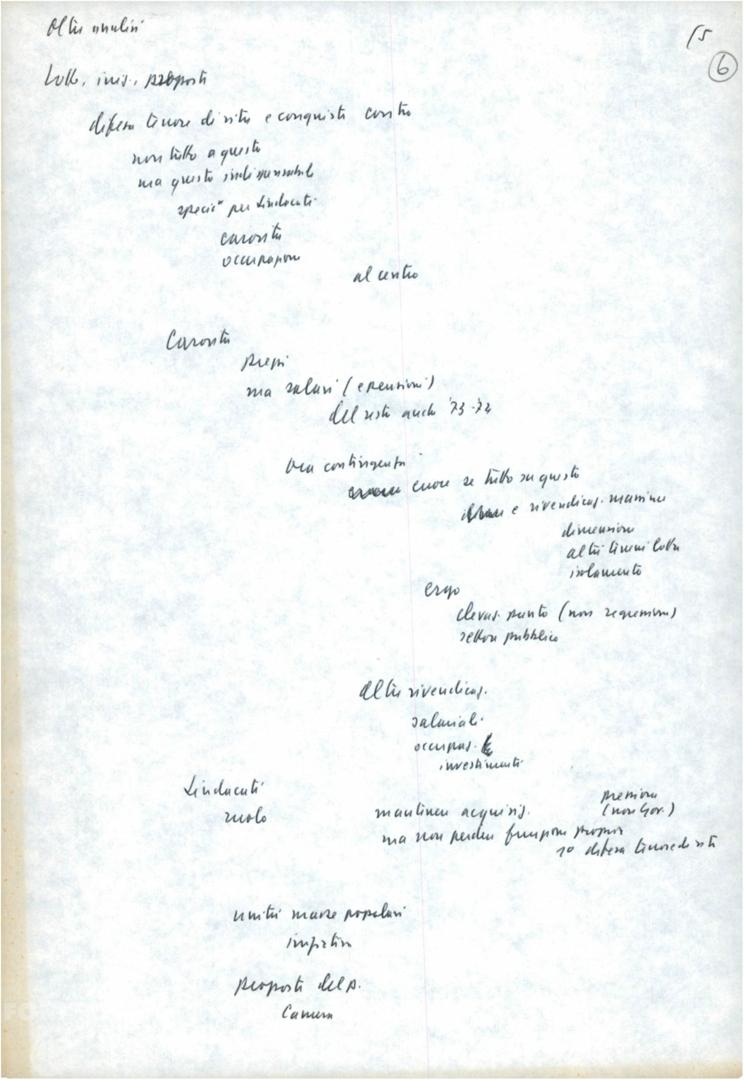 Oltre analisi
15
6
Lotte, iniz., proposte
difesa tenore di vita e conquiste contro
non tutto a questo
ma questo indispensabil
specie per sindacati
carovita
occupazione
al centro
Carovita
prezzi
ma salari (e pensioni)
del resto anche '73-'72
ora contingenza
cuore se tutto su questo
e rivendicaz. massime
dimensione
altri terreni lotta
isolamento
ergo
elevaz. punto (non regressione)
settore pubblico
Altre rivendicaz.
salariali
occupaz.
investimenti
Sindacati
ruolo
mantenere acquisiz.
pressione
(non Gov.)
ma non perdere funzione propria
1º difesa tenore di vita
unità masse popolari
iniziative
proposte del p.
Camera